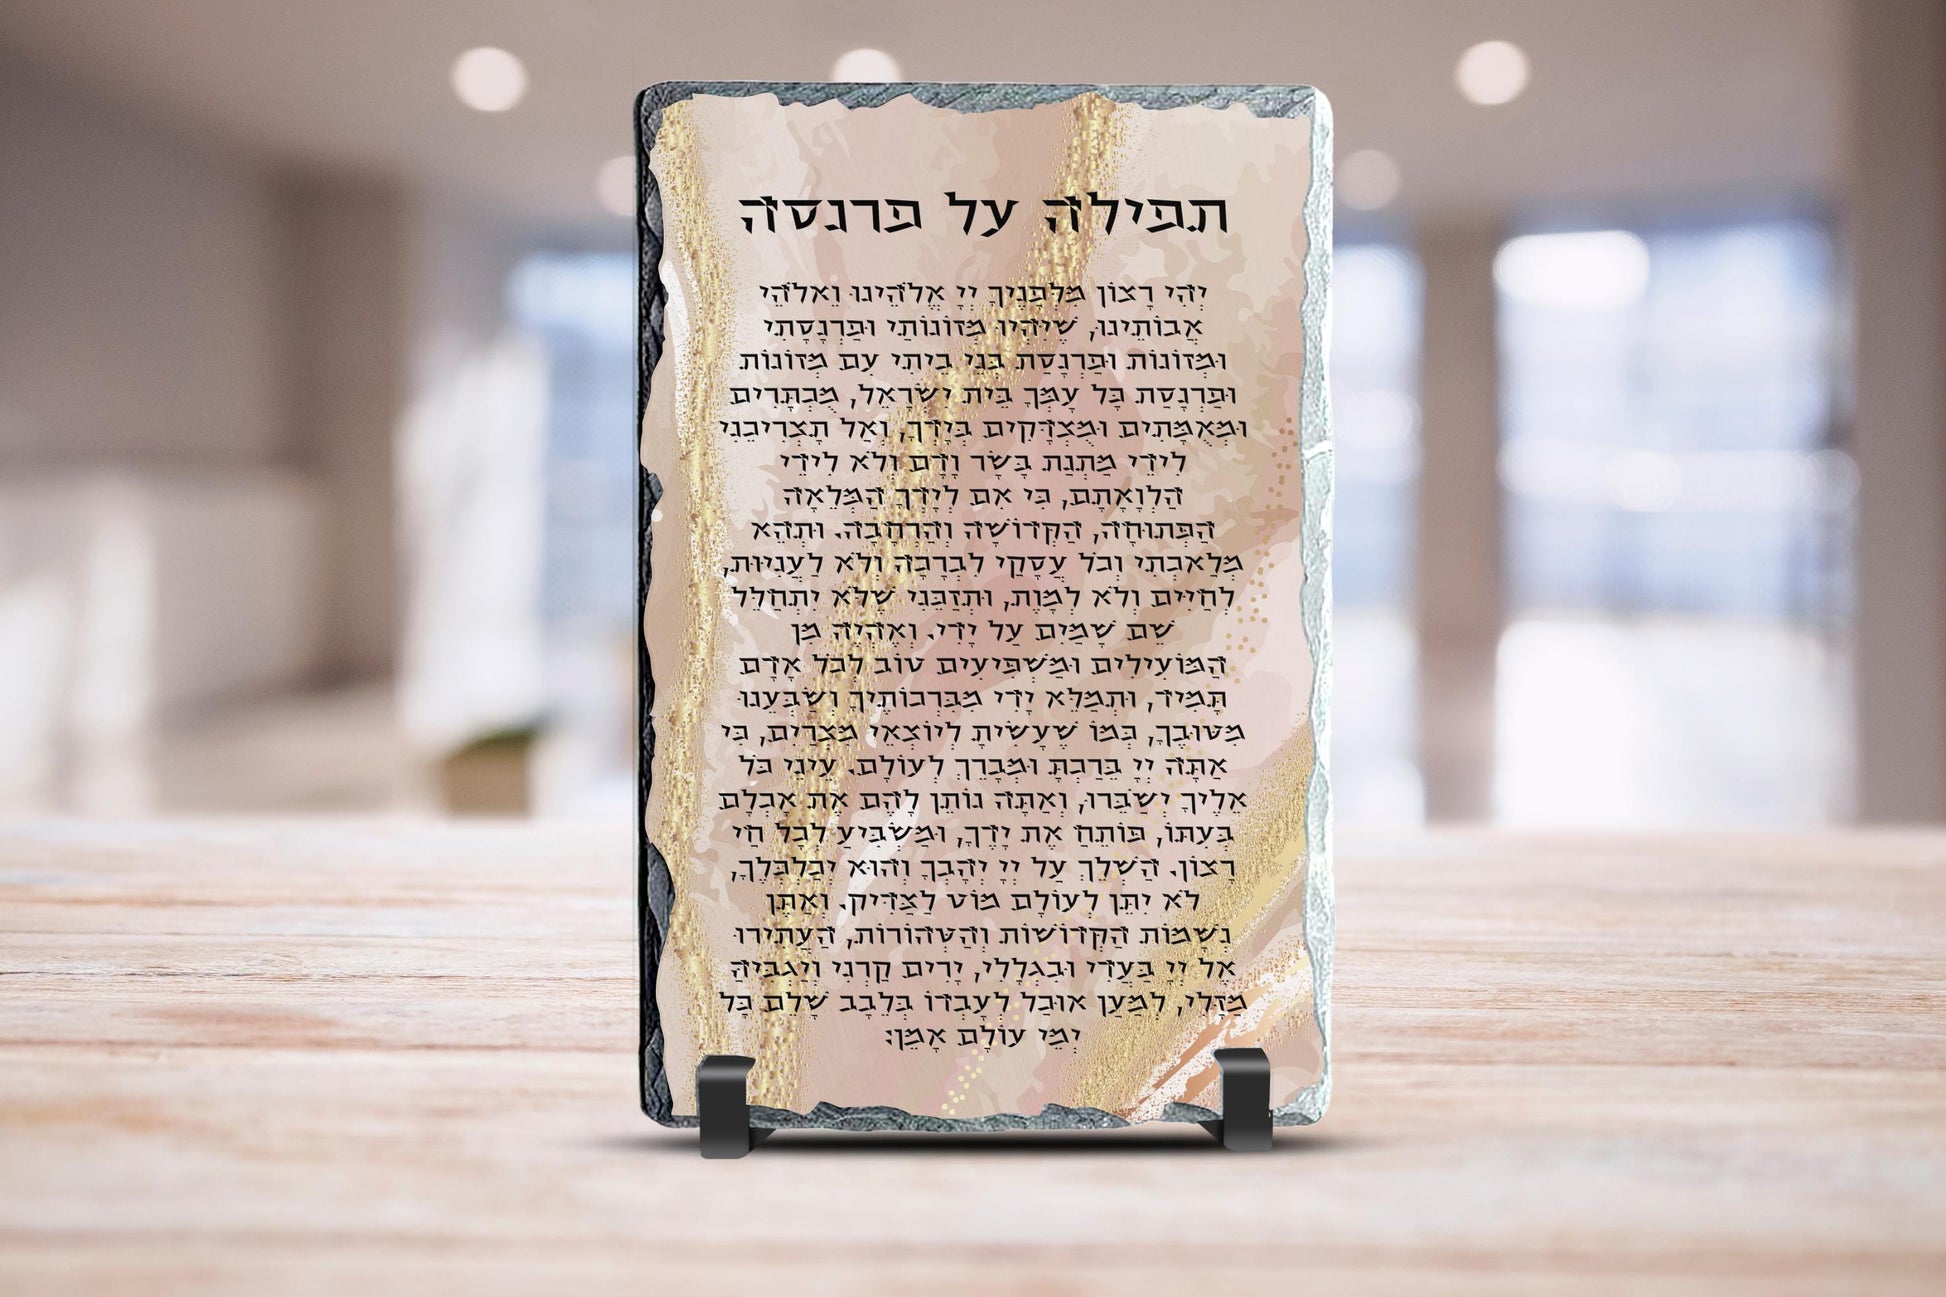 תפילה על פרנסה
יְהִי רָצוֹן מִלְּפָנֶיךָ יְיָ אֱלֹהֵינוּ וֵאלֹהֵי
אֲבוֹתֵינוּ, שֶׁיִּהְיוּ מְזוֹנוֹתַי וּפַרְנָסָתִי
וּמְזוֹנוֹת וּפַרְנָסַת בְּנֵי בֵיתִי עִם מְזוֹנוֹת
וּפַרְנָסַת כָּל עַמְּךָ בֵּית יִשְׂרָאֵל, מֻכְתָּרִים
וּמְאֻמָּתִים וּמְצֻדָּקִים בְּיָדְךָ, וְאַל תַּצְרִיכֵנִי
לִידֵי מַתְּנַת בָּשָׂר וָדָם וְלֹא לִידֵי
הַלְוָאָתָם, כִּי אִם לְיָדְךָ הַמְּלֵאָה
הַפְּתוּחָה, הַקְּדוֹשָׁה וְהָרְחָבָה. וּתְהֵא
מְלַאכְתִּי וְכֹל עֲסָקַי לִבְרָכָה וְלֹא לַעֲנִיּוּת,
לְחַיִּים וְלֹא לְמָוֶת, וּתְזַכֵּנִי שֶׁלֹּא יִתְחַלֵּל
שֵׁם שָׁמַיִם עַל יָדִי. וְאֶהְיֶה מִן
הַמּוֹעִילִים וּמַשְׁפִּיעִים טוֹב לְכֹל אָדָם
תָּמִיד, וּתְמַלֵּא יָדִי מִבִּרְכוֹתֶיךָ וְשַׂבְּעֵנוּ
מִטּוּבֶךָ, כְּמוֹ שֶׁעָשִׂיתָ לְיוֹצְאֵי מִצְרַיִם, כִּי
אַתָּה יְיָ בֵּרַכְתָּ וּמְבָרֵךְ לְעוֹלָם. עֵינֵי כֹל
אֵלֶיךָ יְשַׂבֵּרוּ, וְאַתָּה נוֹתֵן לָהֶם אֶת אָכְלָם
בְּעִתּוֹ, פּוֹתֵחַ אֶת יָדֶךָ, וּמַשְׂבִּיעַ לְכָל חַי
רָצוֹן. הַשְׁלֵךְ עַל יְיָ יְהָבְךָ וְהוּא יְכַלְכְּלֶךָ,
לֹא יִתֵּן לְעוֹלָם מוֹט לַצַּדִּיק. וְאַתֵּן
נְשָׁמוֹת הַקְּדוֹשׁוֹת וְהַטְּהוֹרוֹת, הַעְתִּירוּ
אֶל יְיָ בַּעֲדִי וּבִגְלָלִי, יָרִים קַרְנִי וְיַגְבִּיהַּ
מַזָּלִי, לְמַעַן אוּכַל לְעָבְדוֹ בְּלֵבָב שָׁלֵם כָּל
יְמֵי עוֹלָם אָמֵן: